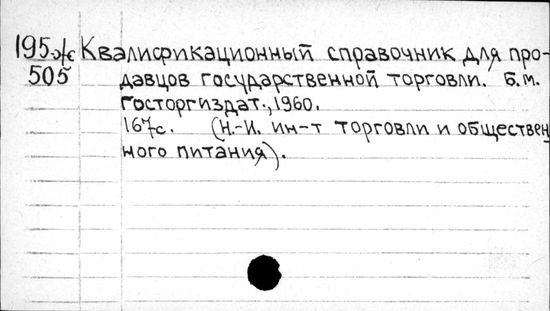 195ж Квалификационный справочник для про-
505 давцов государственной торговли. Б.м.
Госторгиздат., 1960.
167с. (Н.-И. ин-т торговли и обществен
ного питания).